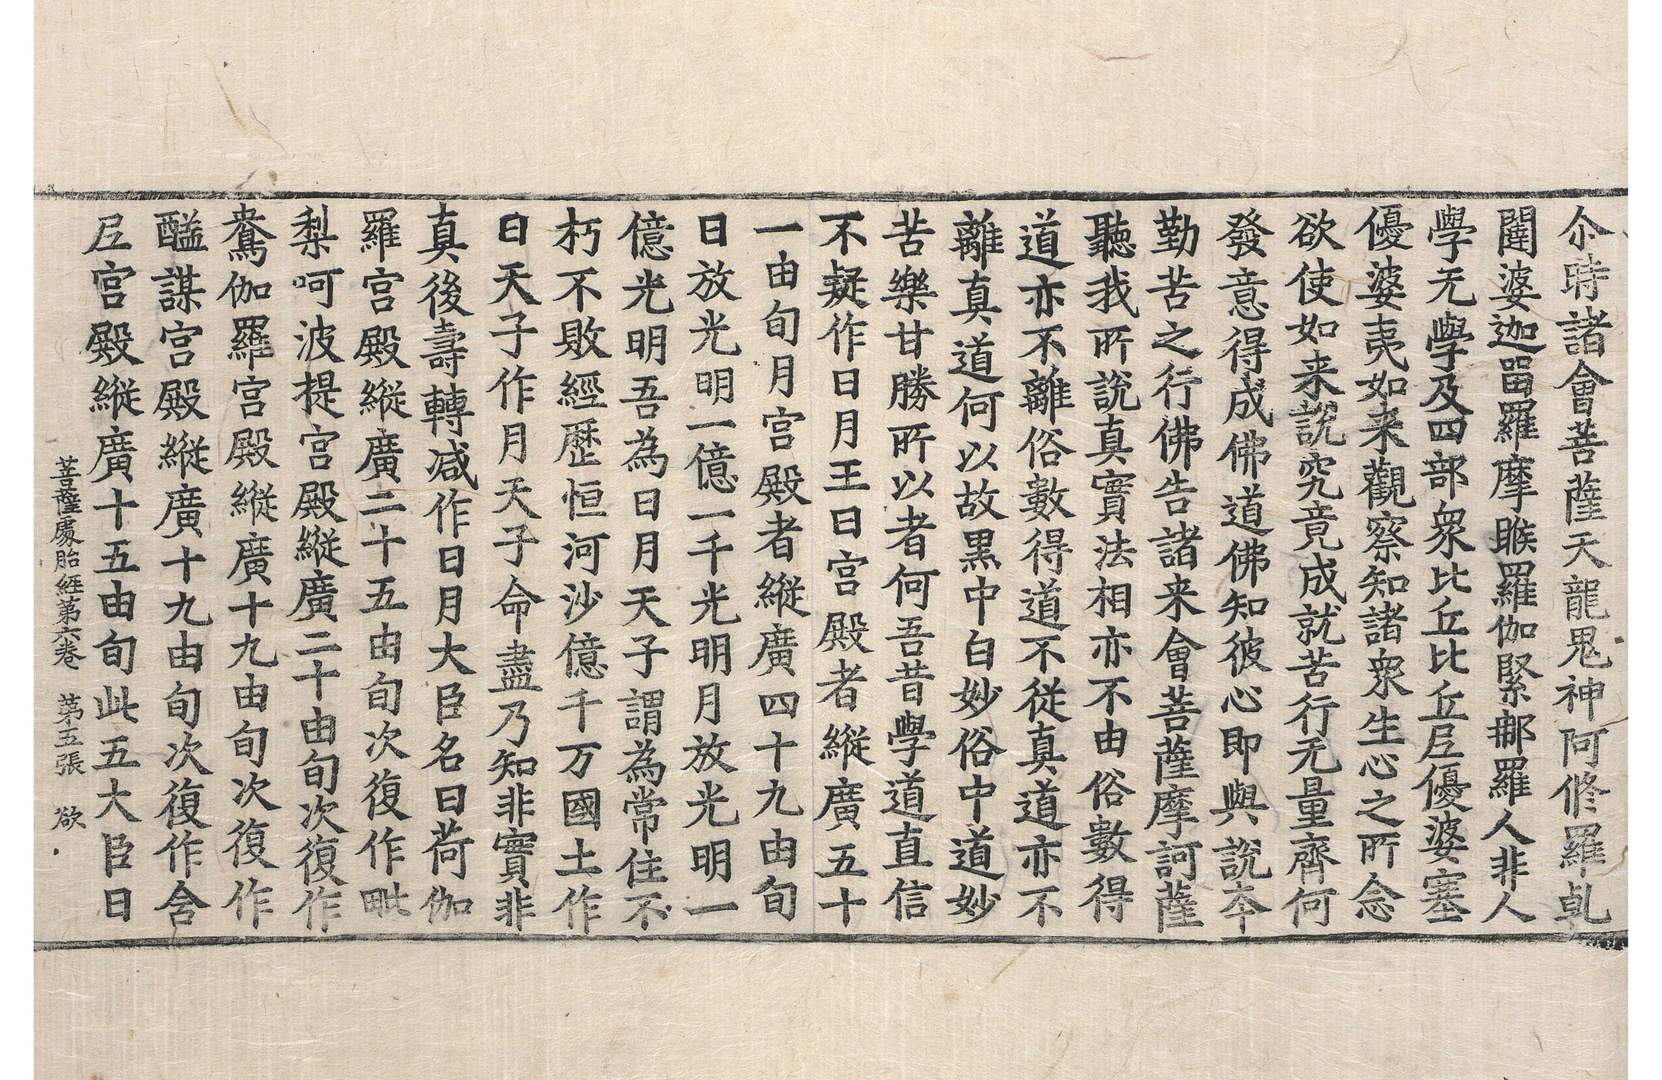 尒時諸會菩薩天龍鬼神阿脩羅乹
闥婆迦留羅摩睺羅伽緊那羅人非人
學无學及四部衆比丘比丘尼優婆塞
優婆夷如来觀察知諸衆生心之所念
欲使如来說究竟成就苦行无量齊何
發意得成佛道佛知彼心即與說夲
勤苦之行佛告諸来會菩薩摩訶薩
聽我所說真實法相亦不由俗數得
道亦不離俗數得道不從真道亦不
離真道何以故黒中白妙俗中道妙
苦樂甘勝所以者何吾昔學道直信
不疑作日月王日宫殿者縱廣五十
一由旬月宫殿者縱廣四十九由旬
日放光明一億一千光明月放光明一
億光明吾為日月天子謂為常住不
朽不敗經歷恒河沙億千万國土作
日天子作月天子命盡乃知非實非
真後壽轉減作日月大臣名曰荷伽
羅宫殿縱廣二十五由旬次復作毗
梨呵波提宫殿縱廣二十由旬次復作
鴦伽羅宫殿縱廣十九由旬次復作
醯謀宫殿縱廣十九由旬次復作含
尼宫殿縱廣十五由旬此五大臣日
菩薩處胎經第六卷 第五張 欲